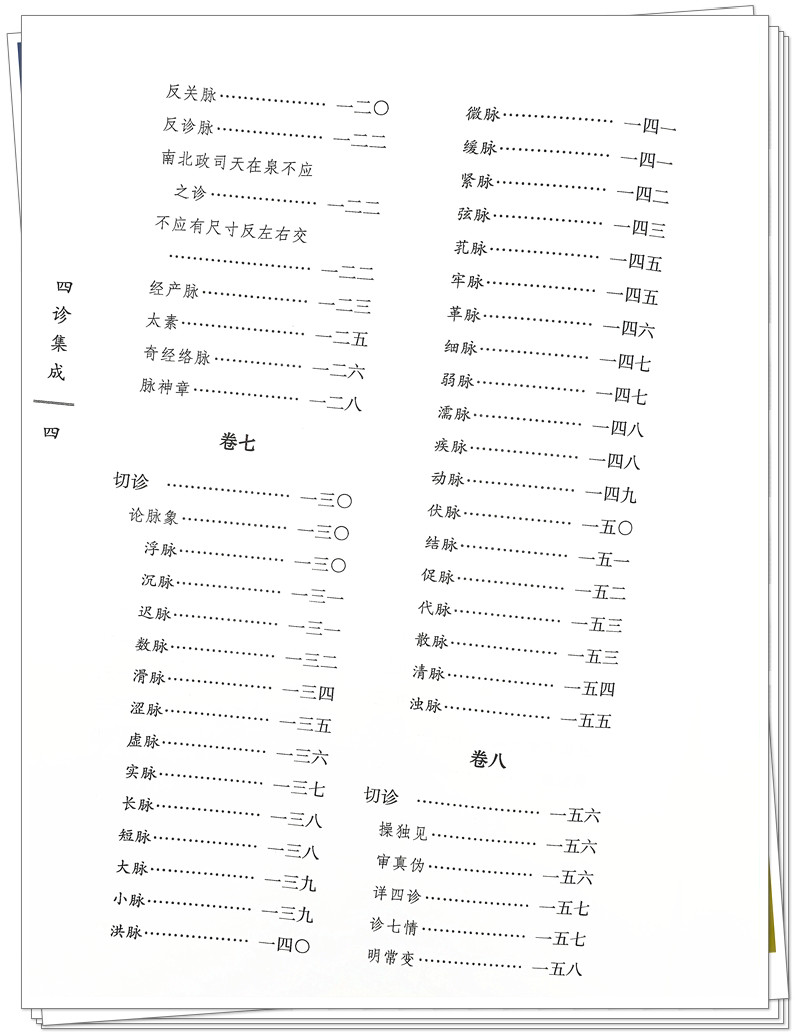 四诊集成
四
反关脉………………一二〇
反诊脉………………一二二
南北政司天在泉不应
之诊………………一二二
不应有尺寸反左右交
……………………一二二
经产脉………………一二三
太素…………………一二五
奇经络脉……………一二六
脉神章………………一二八
卷七
切诊…………………一三〇
论脉象………………一三〇
浮脉…………………一三〇
沉脉…………………一三一
迟脉…………………一三一
数脉…………………一三二
滑脉…………………一三四
涩脉…………………一三五
虚脉…………………一三六
实脉…………………一三七
长脉…………………一三八
短脉…………………一三八
大脉…………………一三九
小脉…………………一三九
洪脉…………………一四〇
微脉…………………一四一
缓脉…………………一四一
紧脉…………………一四二
弦脉…………………一四三
芤脉…………………一四五
牢脉…………………一四五
革脉…………………一四六
细脉…………………一四七
弱脉…………………一四七
濡脉…………………一四八
疾脉…………………一四八
动脉…………………一四九
伏脉…………………一五〇
结脉…………………一五一
促脉…………………一五二
代脉…………………一五三
散脉…………………一五三
清脉…………………一五四
浊脉…………………一五五
卷八
切诊…………………一五六
操独见………………一五六
审真伪………………一五六
详四诊………………一五七
诊七情………………一五七
明常变………………一五八